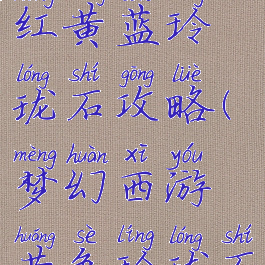 红黄蓝玲
lóng shí gōng lüè
珑石攻略(
mèng huàn xī yóu
梦幻西游
huáng sè líng lóng shí
黄色玲珑石